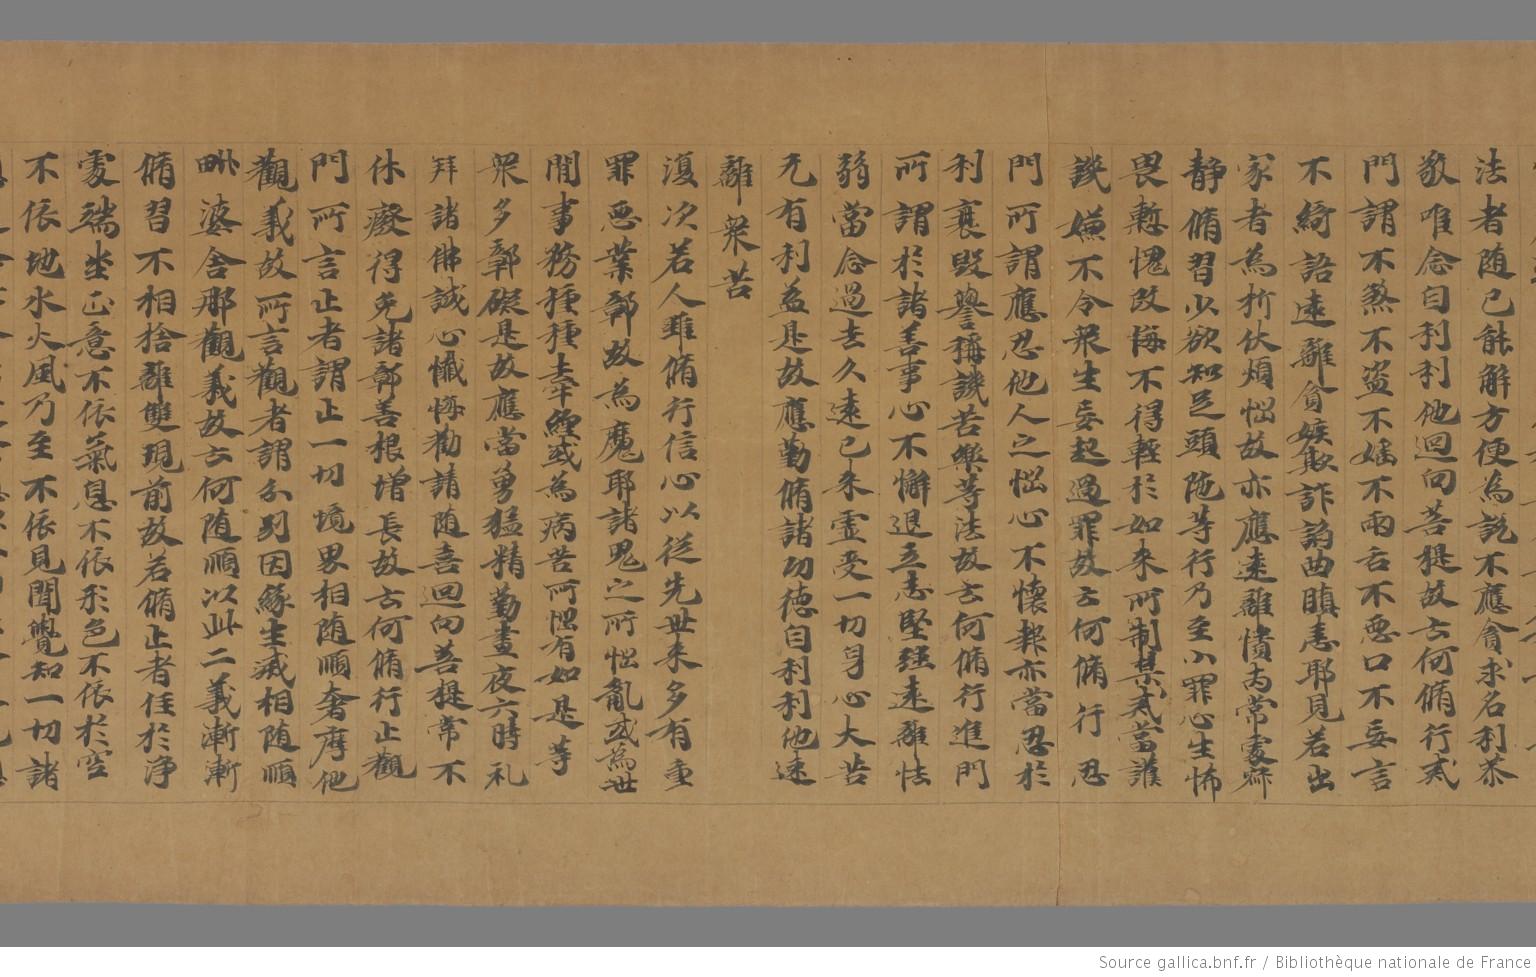 法者随已能解方便為説不應貪求名利恭
敬唯念自利利他迴向菩提故云何脩行戒
門謂不煞不盗不婬不兩舌不惡口不妄言
不綺語遠離貪嫉欺詐謟曲瞋恚耶見若出
家者為折伏煩惱故亦應遠離憒丙常處寂
静脩習少欲知足頭陁等行乃至小罪心生怖
畏慙愧改悔不得輕於如来所制禁戒當護
譏嫌不令衆生妄起過罪故云何脩行忍
門所謂應忍他人之惱心不懷報亦當忍於
利衰毀譽稱譏苦樂等法故云何脩行進門
所謂於諸善事心不懈退立志堅强遠離怯
弱當念過去久遠已来虚受一切身心大苦
无有利益是故應勤脩諸功德自利利他速
離衆苦
復次若人雖脩行信心以従先世来多有重
罪惡業鄣故為魔耶諸鬼之所惱亂或為世
間事務種種牽纏或為病苦所惱有如是等
衆多鄣礙是故應當勇猛精勤晝夜六時礼
拜諸佛誠心懺悔勸請随喜迴向菩提常不
休癈得免諸鄣善根増長故云何脩行止觀
門所言止者謂止一切境界相随順奢摩他
觀義故所言觀者謂分別因緣生滅相随順
毗婆舍那觀義故云何随順以此二義漸漸
脩習不相捨離雙現前故若脩止者住於浄
處端坐正意不依氣息不依形色不依於空
不依地水火風乃至不依見聞覺知一切諸